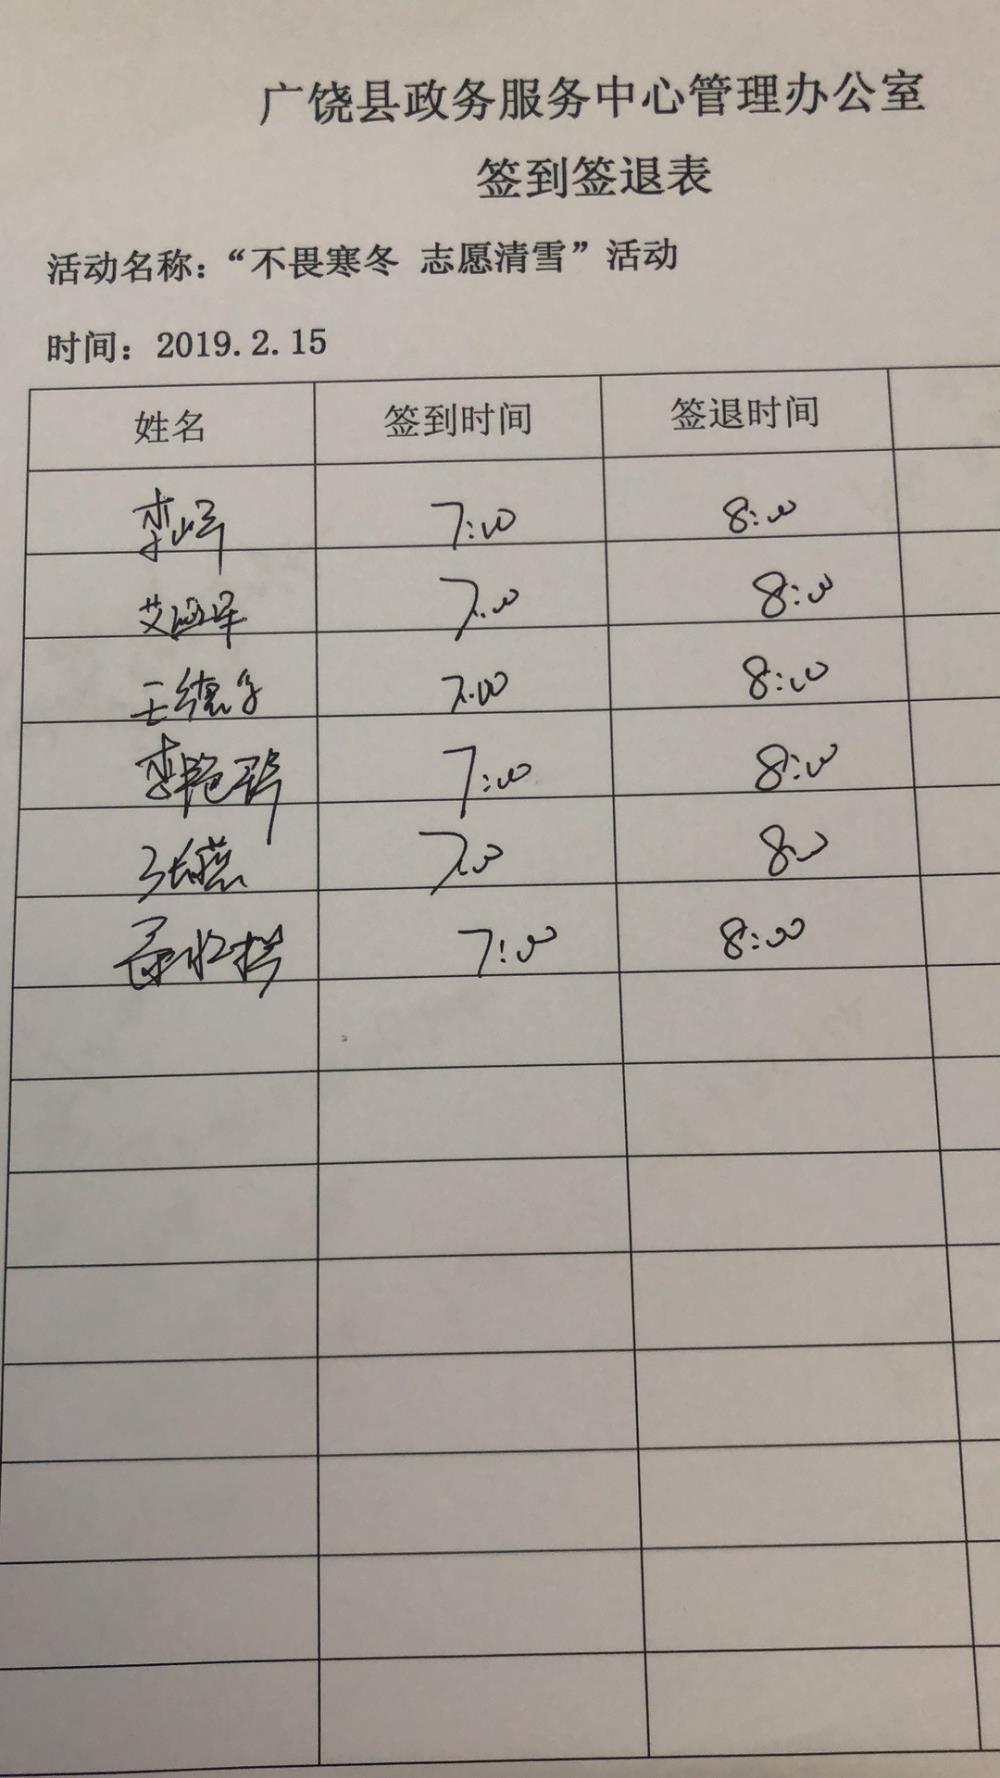 广饶县政务服务中心管理办公室
签到签退表
活动名称：“不畏寒冬 志愿清雪”活动
时间：2019.2.15
姓名 签到时间 签退时间
7:00 8:00
艾 7:00 8:00
王德 7:00 8:00
李艳 7:00 8:00
张燕 7:00 8:00
7:00 8:00